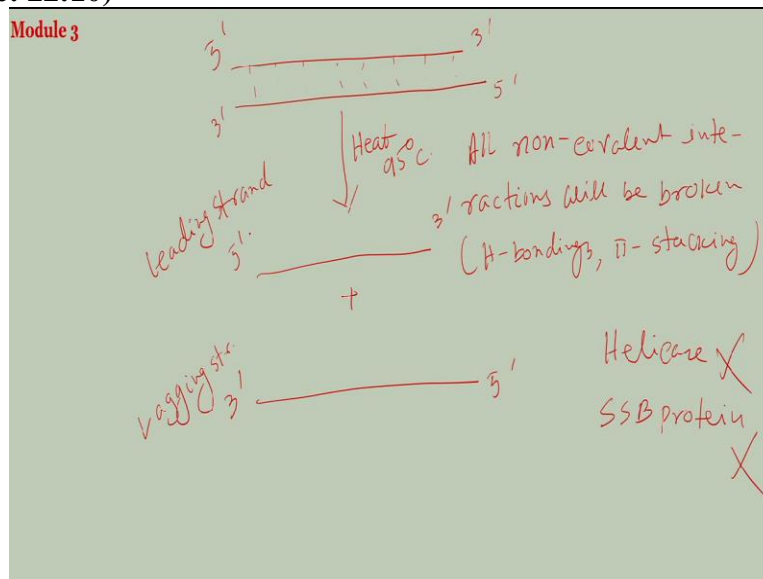 Module 3
5' 3'
3' 5'
Heat 95°C. All non-covalent inte-
ractions will be broken
(H-bondings, π-stacking)
Leading strand
5'. 3'
+
Lagging str.
3' 5'
Helicase X
SSB protein
X